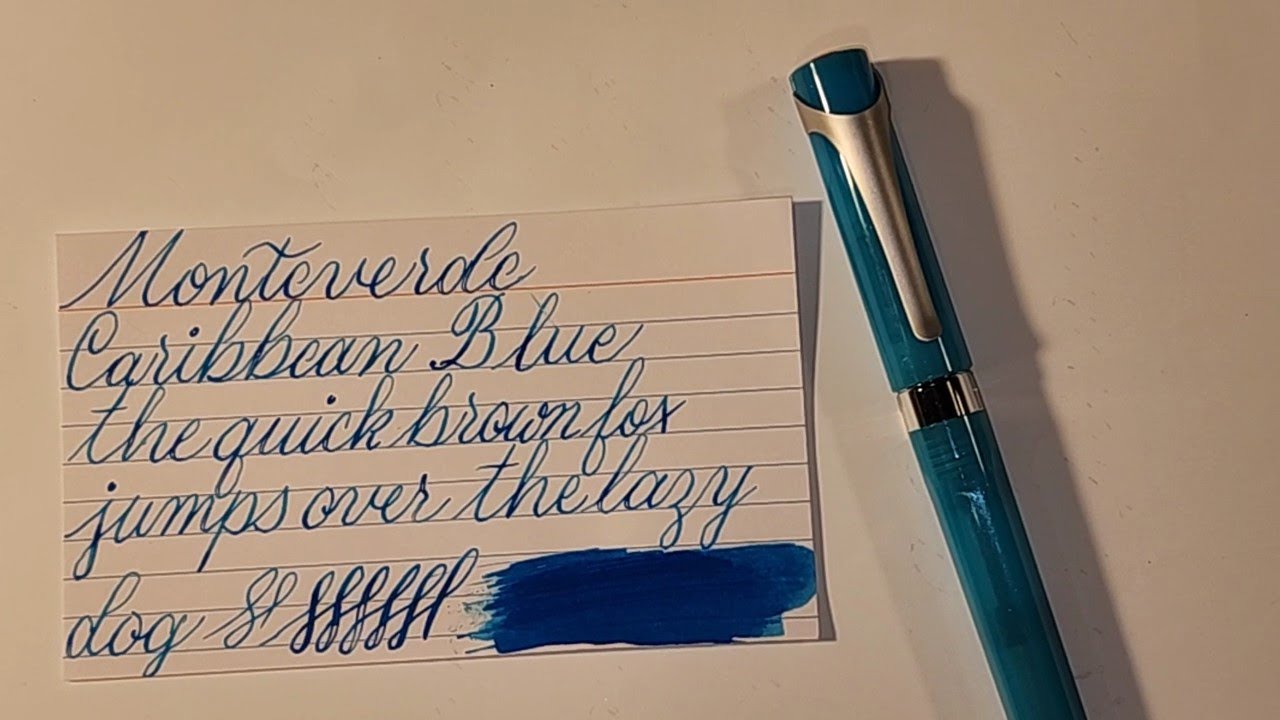 Monteverde
Caribbean Blue
the quick brown fox
jumps over the lazy
dog